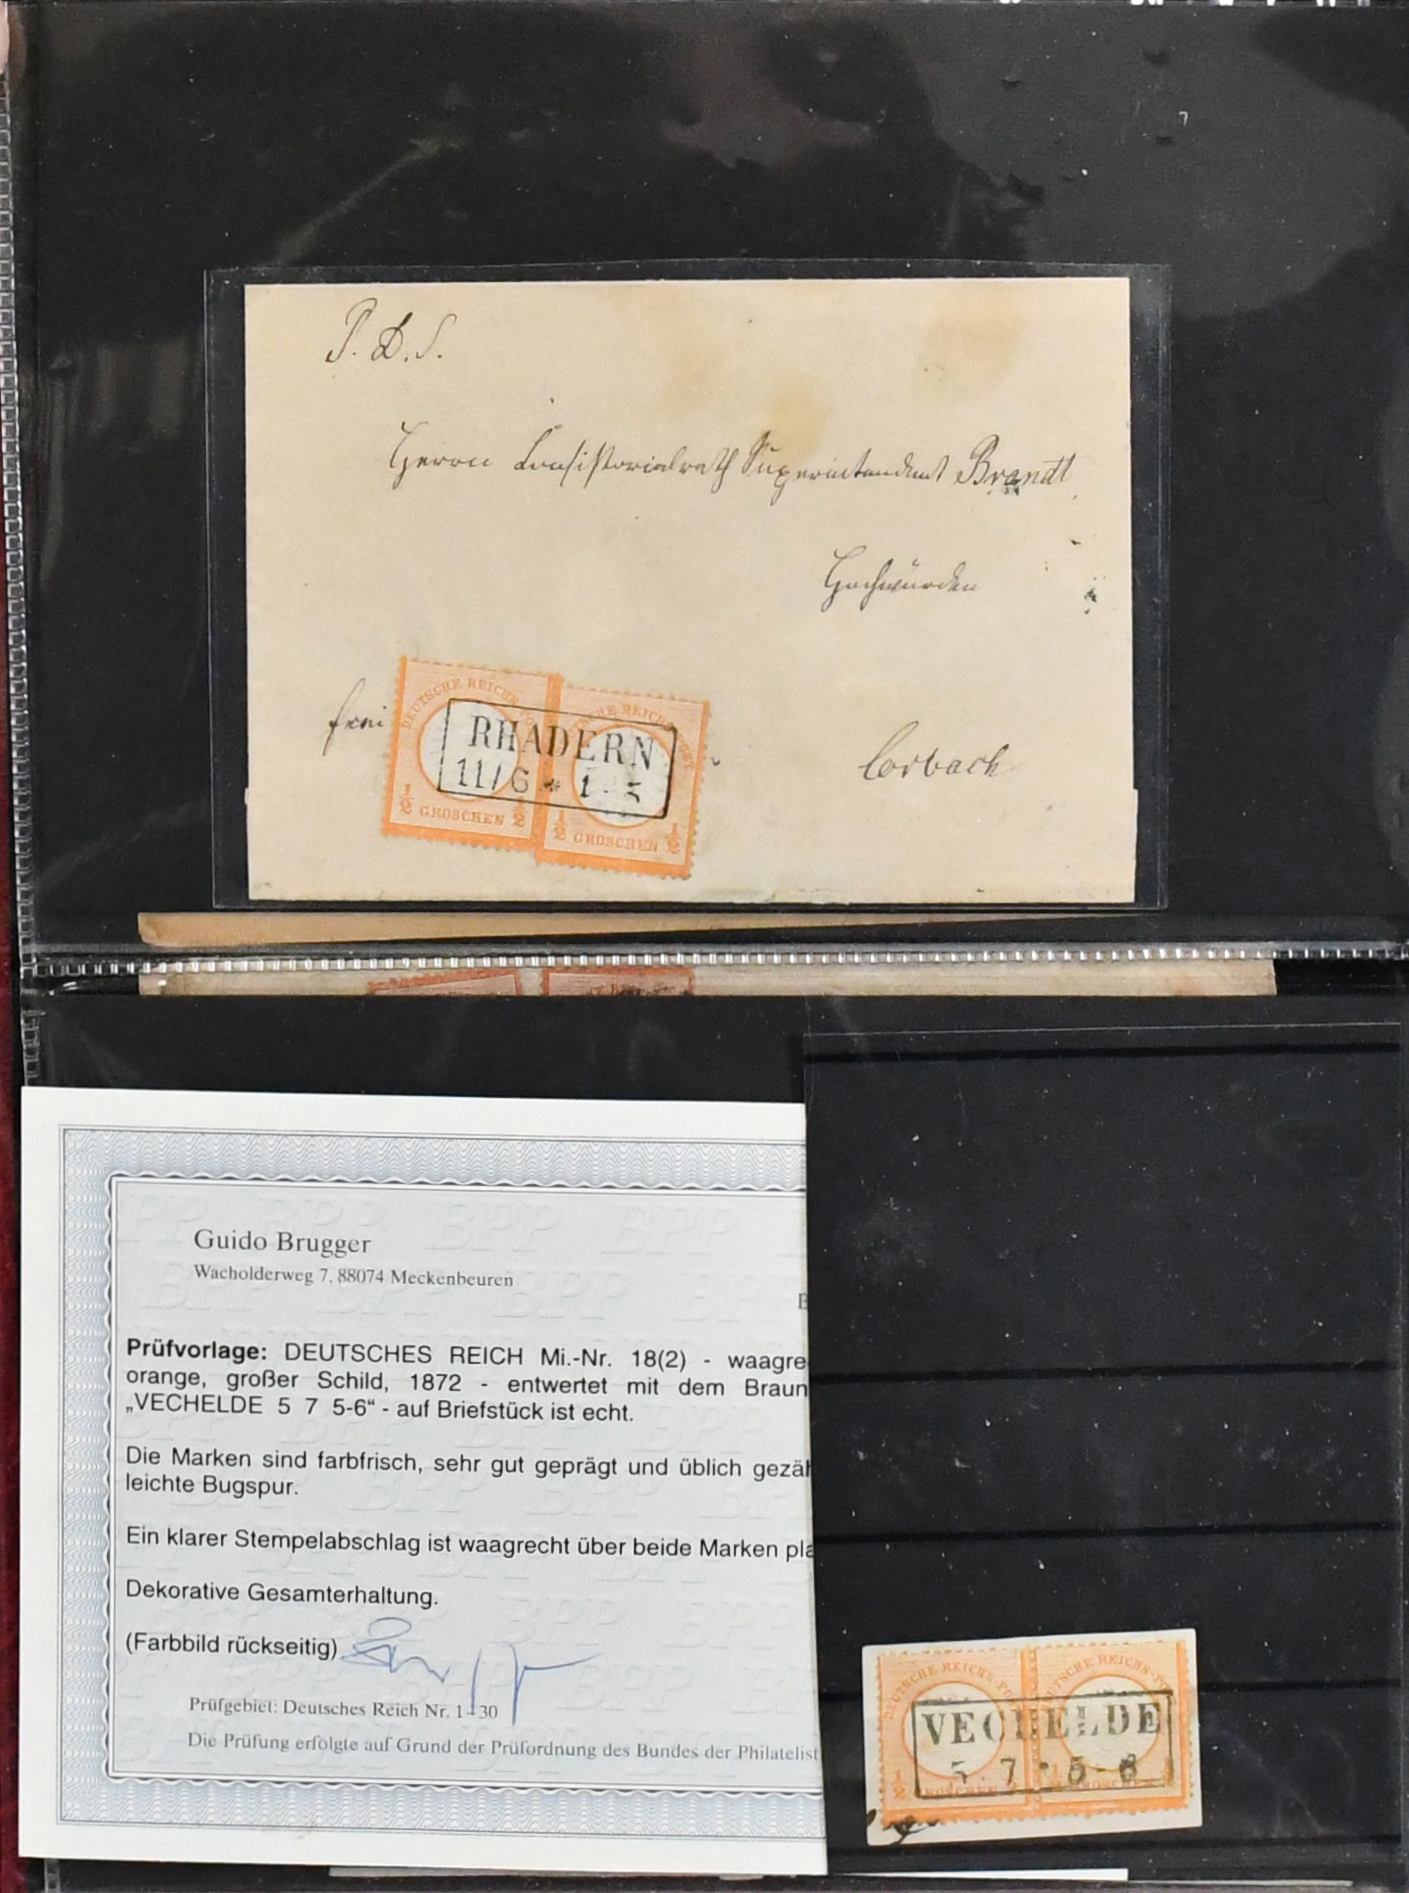 P. D. S.
Herrn Consistorialrath Superintendent Brandt
Hochwürden
frei
Corbach
DEUTSCHE REICHS-PO
RHADERN
11/6 * 1-
½ GROSCHEN ½
½ GROSCHEN ½
Guido Brugger
Wacholderweg 7, 88074 Meckenbeuren
Prüfvorlage: DEUTSCHES REICH Mi.-Nr. 18(2) - waagre
orange, großer Schild, 1872 - entwertet mit dem Braun
„VECHELDE 5 7 5-6“ - auf Briefstück ist echt.
Die Marken sind farbfrisch, sehr gut geprägt und üblich gezäh
leichte Bugspur.
Ein klarer Stempelabschlag ist waagrecht über beide Marken pla
Dekorative Gesamterhaltung.
(Farbbild rückseitig)
Prüfgebiet: Deutsches Reich Nr. 1-30
Die Prüfung erfolgte auf Grund der Prüfordnung des Bundes der Philatelist
DEUTSCHE REICHS-PO
DEUTSCHE REICHS-P
VECHELDE
5 7 * 5-6
½ GROSCHEN
GROSCHEN